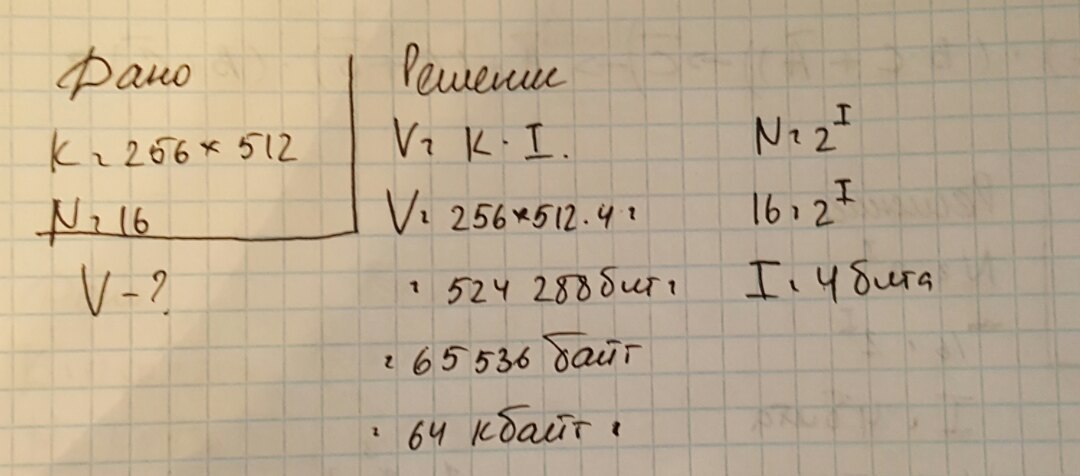 Дано
K = 256 * 512
N = 16
V - ?
Решение
V = K · I.
V = 256*512·4 =
= 524 288 бит =
= 65 536 байт
= 64 кбайт =
N = 2^I
16 = 2^I
I = 4 бита